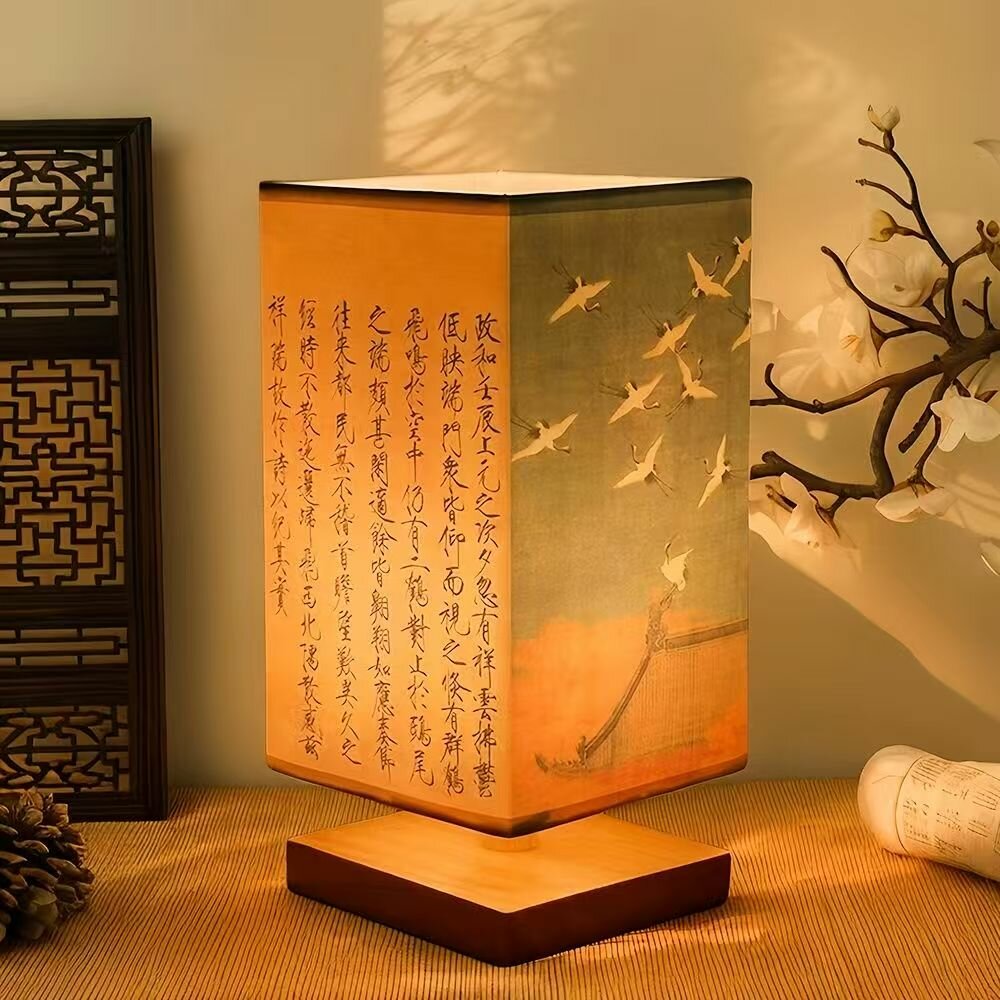 政和壬辰上元之次夕忽有祥雲拂鬱
低映端門衆皆仰而視之倐有群鶴
飛鳴於空中仍有二鶴對止於鴟尾
之端頗甚閑適餘皆翱翔如應奏節
往来都民無不稽首瞻望歎異久之
經時不散迤邐歸飛西北隅散感兹
祥瑞故作詩以紀其實